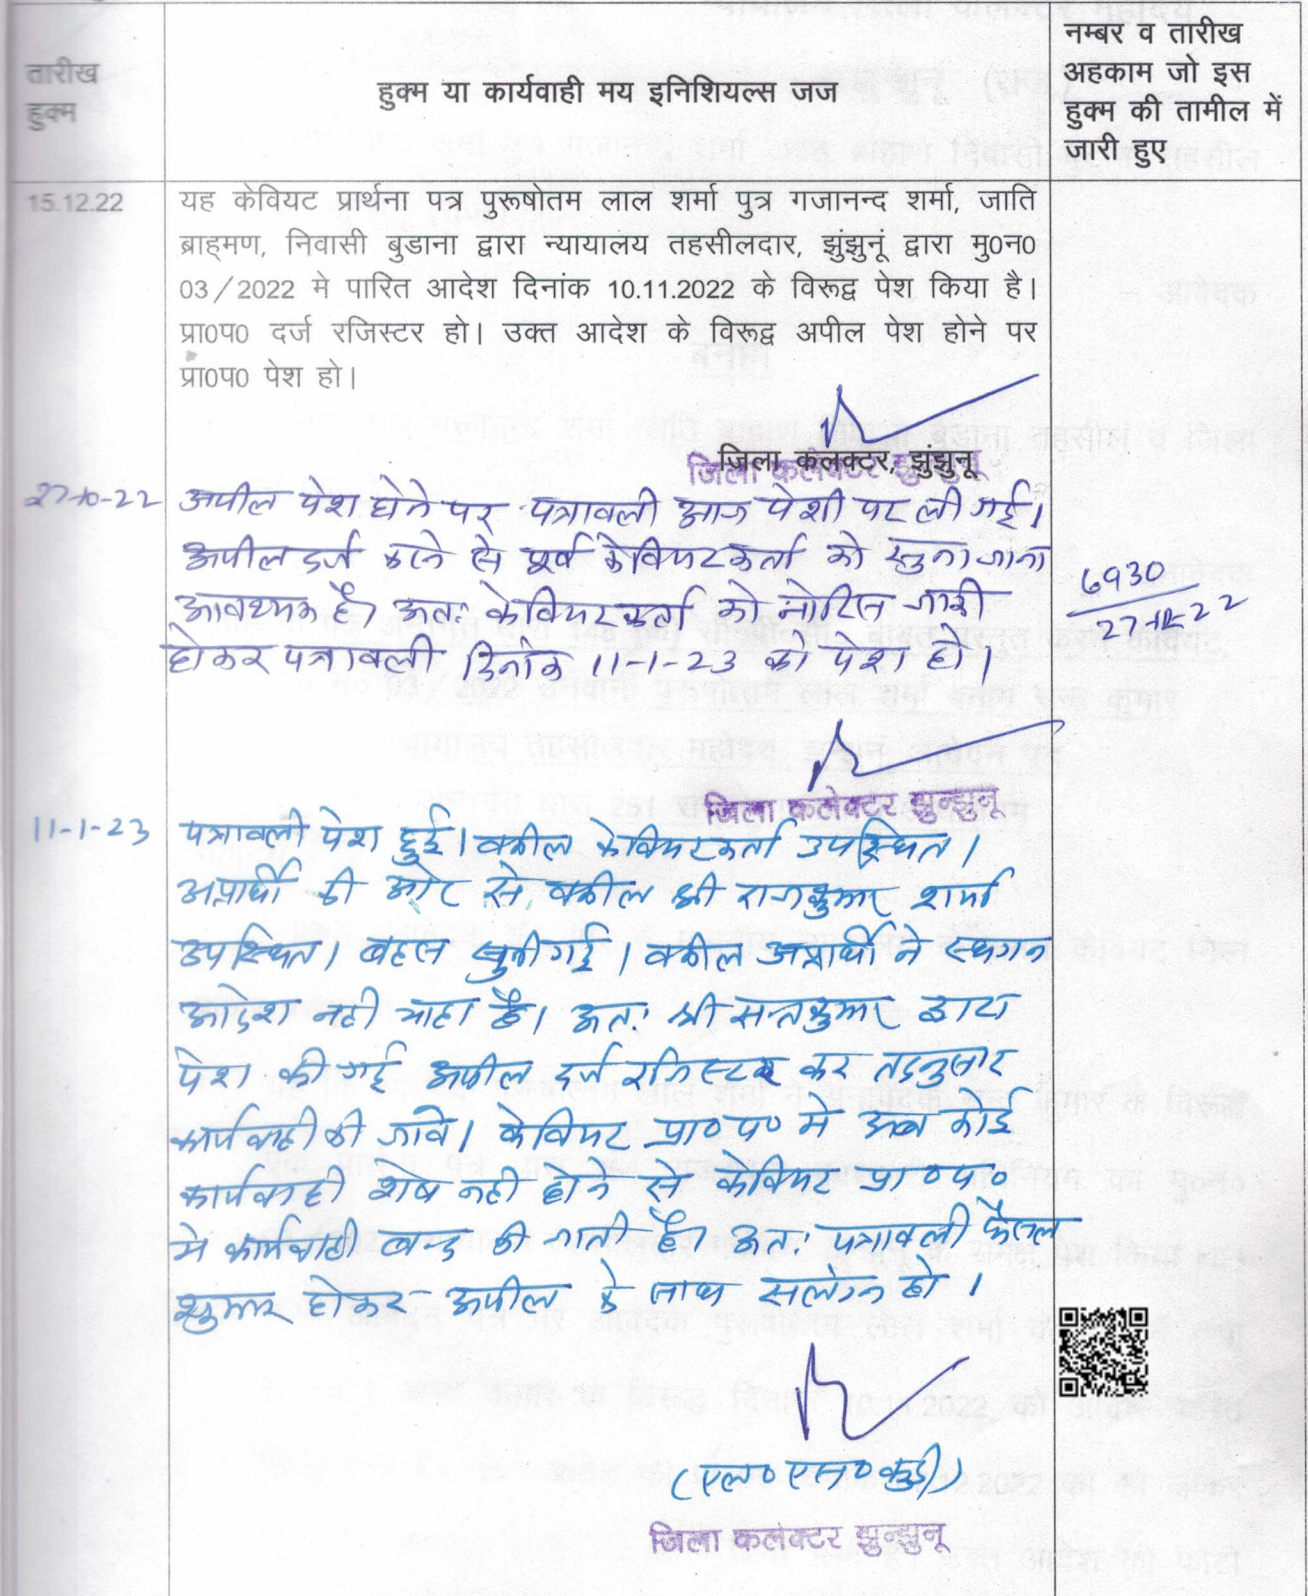 तारीख
हुक्म
हुक्म या कार्यवाही मय इनिशियल्स जज
नम्बर व तारीख
अहकाम जो इस
हुक्म की तामील में
जारी हुए
15.12.22
यह केवियट प्रार्थना पत्र पुरूषोतम लाल शर्मा पुत्र गजानन्द शर्मा, जाति
ब्राह्मण, निवासी बुडाना द्वारा न्यायालय तहसीलदार, झुंझुनूं द्वारा मु0न0
03/2022 मे पारित आदेश दिनांक 10.11.2022 के विरूद्व पेश किया है।
प्रा0प0 दर्ज रजिस्टर हो। उक्त आदेश के विरूद्व अपील पेश होने पर
प्रा0प0 पेश हो।
जिला कलक्टर, झुंझुनू
जिला कलेक्टर झुन्झुनू
अपील पेश होने पर पत्रावली आज पेशी पर ली गई।
अपील दर्ज करने से पूर्व केवियटकर्ता को सुना जाना
आवश्यक है। अतः केवियटकर्ता को नोटिस जारी
होकर पत्रावली दिनांक 11-1-23 को पेश हो।
6930
27-12-22
जिला कलेक्टर झुन्झुनू
11-1-23
पत्रावली पेश हुई। वकील केवियटकर्ता उपस्थित।
अप्रार्थी की ओर से वकील श्री राजकुमार शर्मा
उपस्थित। बहस सुनी गई। वकील अप्रार्थी ने स्थगन
आदेश नही चाहा है। अतः श्री सन्तकुमार द्वारा
पेश की गई अपील दर्ज रजिस्टर कर तदनुसार
कार्यवाही की जावे। केवियट प्रा०प० मे अब कोई
कार्यवाही शेष नही होने से केवियट प्रा०प०
मे कार्यवाही बन्द की जाती है। अतः पत्रावली फैसल
शुमार होकर अपील के साथ सलंग्न हो।
(एल० एन० कुडी)
जिला कलेक्टर झुन्झुनू